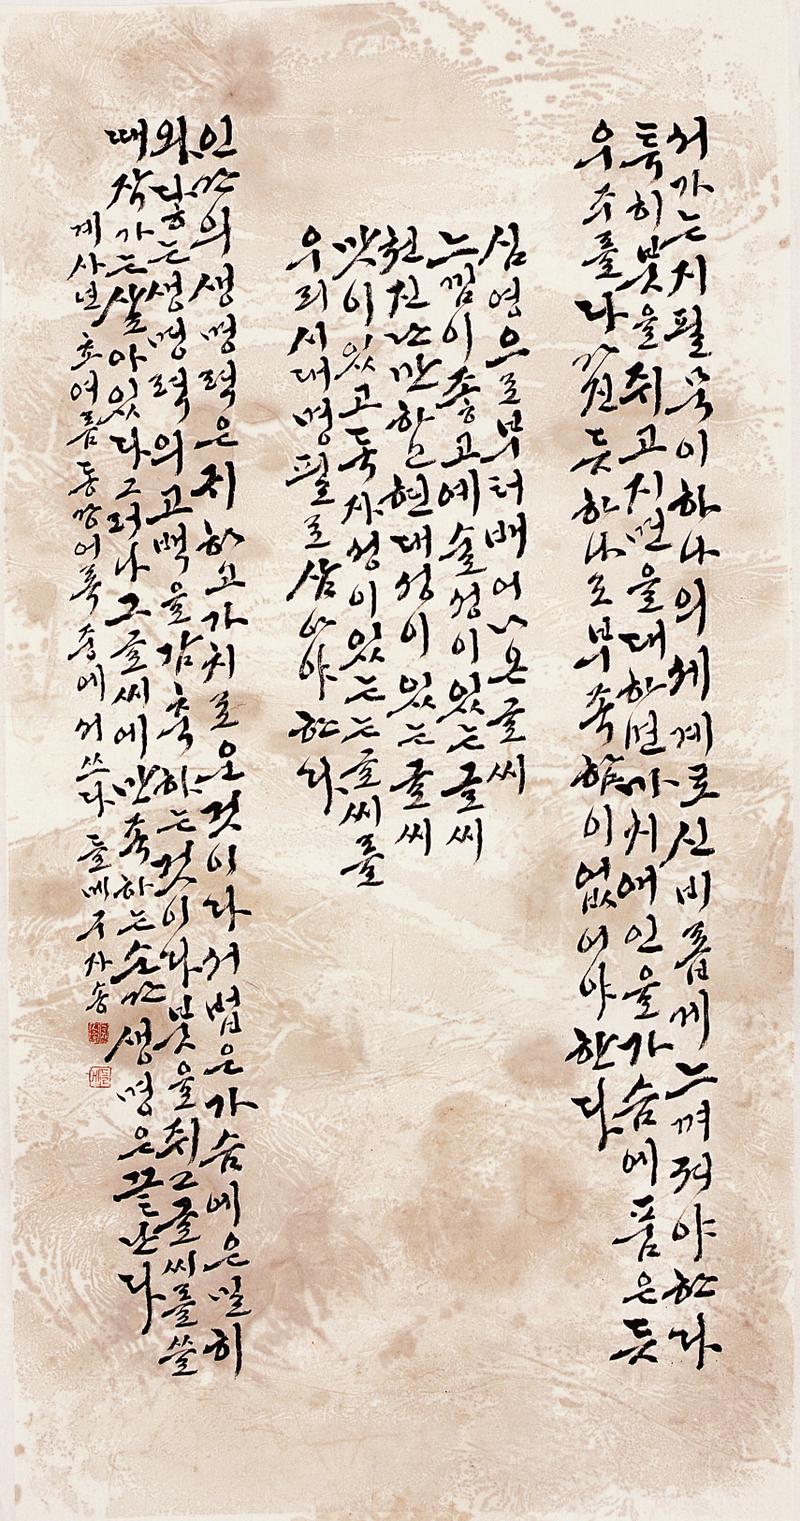 서가는 지필묵이 하나의 체계로 신비롭게 느껴져야 한다
특히 붓을 쥐고 지면을 대하면 마치 애인을 가슴에 품은 듯
우주를 다 얻은 듯 하나 도 부족함이 없어야 한다
심영으로부터 배어나온 글씨
느낌이 좋고 예술성이 있는 글씨
천진난만하고 현대성이 있는 글씨
맛이 있고 독자성이 있는 글씨를
우리 시대 명필로 삼아야 한다
인간의 생명력은 지하고 가치로운 것이다 서법은 가슴에 은밀히
와 닿는 생명력의 고백을 함축하는 것이다 붓을 쥐고 글씨를 쓸
때 작가는 살아있다 그러나 그 글씨에 만족하는 순간 생명은 끝난다
계사년 초여름 동강어록 중에서 쓰다 들메 구자송